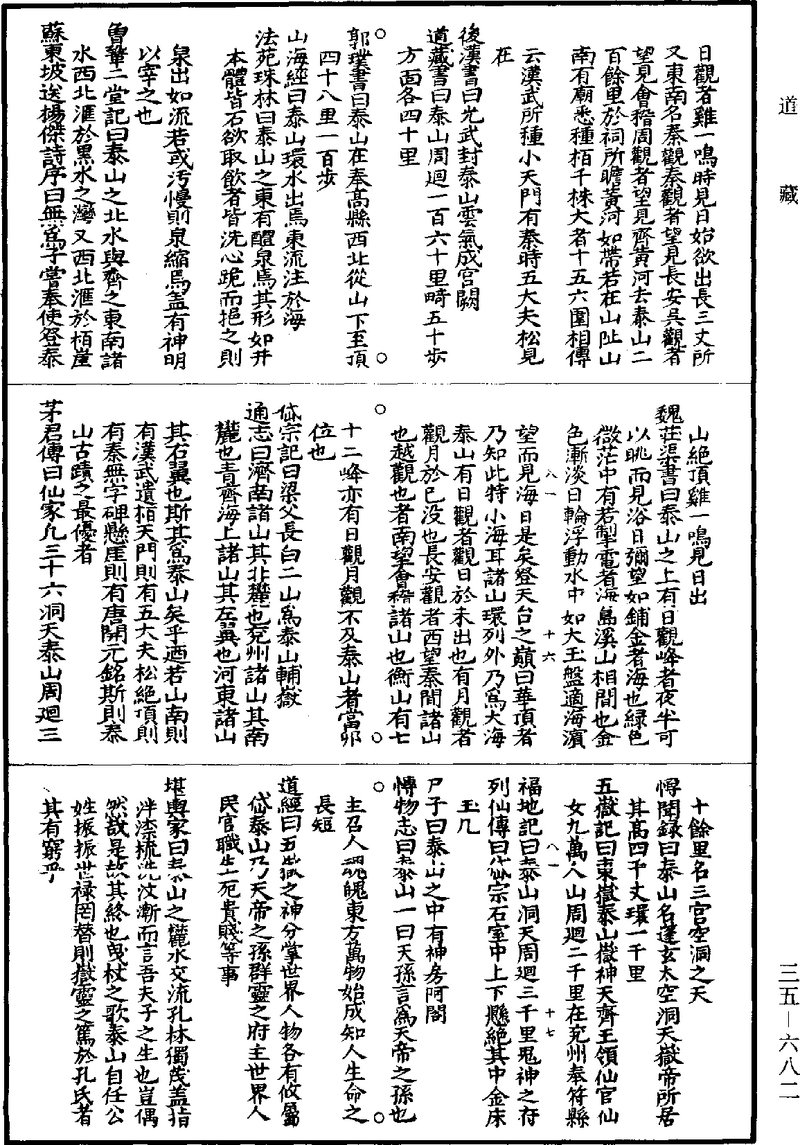 道藏
日觀者雞一鳴時見日始欲出長三丈所
又東南名秦觀秦觀者望見長安吳觀者
望見會稽周觀者望見齊黃河去泰山二
百餘里於祠所瞻黃河如帶若在山阯山
南有廟悉種栢千株大者十五六圍相傳
云漢武所種小天門有秦時五大夫松見
在
後漢書曰光武封泰山雲氣成宮闕
道藏書曰泰山周迴一百六十里畸五十步
方面各四十里
郭璞書曰泰山在奉高縣西北從山下至頂
四十八里一百步
山海經曰泰山環水出焉東流注於海
法苑珠林曰泰山之東有醴泉焉其形如井
本體皆石欲取飲者皆洗心跪而挹之則
泉出如流若或污慢則泉縮焉盖有神明
以宰之也
曾鞏二堂記曰泰山之北水與齊之東南諸
水西北滙於黑水之灣又西北滙於栢崖
蘇東坡送楊傑詩序曰無為子嘗奉使登泰
山絕頂雞一鳴見日出
魏莊渠書曰泰山之上有日觀峰者夜半可
以眺而見浴日彌望如鋪金者海也緑色
微茫中有若掣電者海島溪山相間也金
色漸淡日輪浮動水中如大玉盤適海濱
望而見海日是矣登天台之巔曰華頂者
乃知此特小海耳諸山環列外乃為大海
泰山有日觀者觀日於未出也有月觀者
觀月於已没也長安觀者西望秦間諸山
也越觀也者南望會稽諸山也衡山有七
十二峰亦有日觀月觀不及泰山者當卯
位也
岱宗記曰梁父長白二山為泰山輔嶽
通志曰濟南諸山其北麓也兗州諸山其南
麓也青齊海上諸山其左翼也河東諸山
其右翼也斯其為泰山矣乎迺若山南則
有漢武遺栢天門則有五大夫松絕頂則
有秦無字碑懸崖則有唐開元銘斯則泰
山古蹟之最優者
茅君傳曰仙家凡三十六洞天泰山周迴三
十餘里名三宮空洞之天
慱聞録曰泰山名蓬玄太空洞天嶽帝所居
其高四千丈環一千里
五嶽記曰東嶽泰山嶽神天齊王領仙官仙
女九萬人山周迴二千里在兗州奉符縣
福地記曰泰山洞天周迴三千里鬼神之府
列仙傳曰岱宗石室中上下懸絕其中金床
玉几
尸子曰泰山之中有神房阿閣
慱物志曰泰山一曰天孫言為天帝之孫也
主召人魂魄東方萬物始成知人生命之
長短
道經曰五嶽之神分掌世界人物各有攸屬
岱泰山乃天帝之孫群靈之府主世界人
民官職生死貴賤等事
堪輿家曰泰山之麓水交流孔林獨茂盖指
泮漆梳洗汶漸而言吾夫子之生也豈偶
然哉是故其終也曳杖之歌泰山自任公
姓振振世禄罔替則嶽靈之篤於孔氏者
其有窮乎
八一
十六
八一
十七
三五—六八二